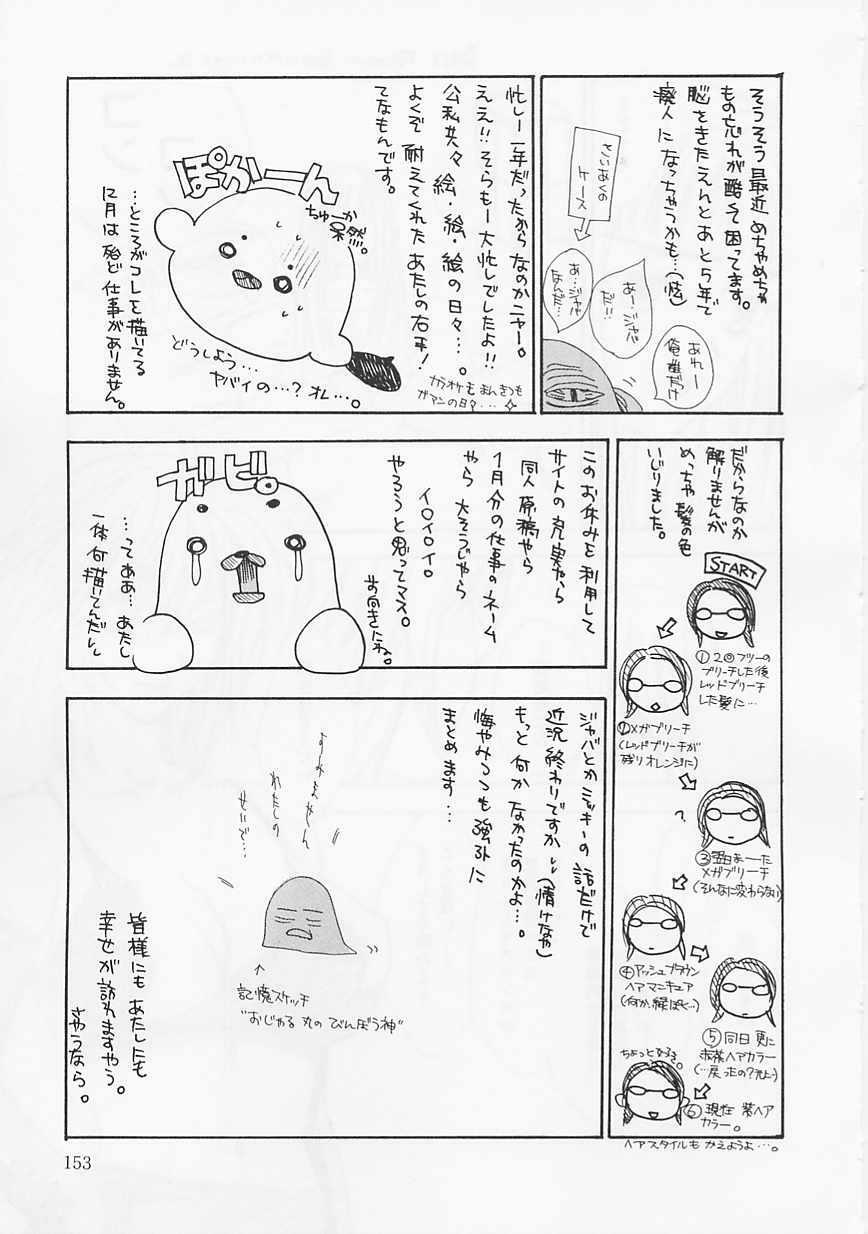 そうそう最近めちゃめちゃ
もの忘れが酷くて困ってます。
脳をきたえんとあと5年で
廃人になっちゃうかも…(怯)
といあくの
ケース
あれー
俺誰だけ
あー…ジャバ
だ!!
あ…ジャバ
なんだ…
忙しー年だったからなのかニャー。
ええ!!そらもー大忙しでしたよ!!
公私共々絵・絵・絵の日々…。
よくぞ耐えてくれたあたしの右手!
てなもんです。
カラオケもまんきつも
ガマンの日々…
ぽかーん
ちゅーか呆然。
…ところがコレを描いてる
12月は殆ど仕事がありません。
どうしよう…
ヤバイの…?オレ…。
だからなのか
解りませんが
めっちゃ髪の色
いじりました。
START
①2◎フリーの
ブリーチした後
レッドブリーチ
した髪に…
②メガブリーチ
(レッドブリーチが
残りオレンジに)
?
③翌日まーた
メガブリーチ
(そんなに変わらない)
④アッシュブラウン
ヘアマニキュア
(何か緑ぽく…)
⑤同日更に
赤茶ヘアカラー
(…戻ったの?元に…)
ちょっと好き。
⑥現在紫ヘア
カラー。
ヘアスタイルもかえようよ…。
このお休みを利用して
サイトの充実やら
同人原稿やら
1月分の仕事のネーム
やら大そうじやら
イロイロイロ
やろうと思ってマス。
前向きにね。
ガビーン
…ってああ…あたし
一体何描いてんだし
ジャバとかミッキーの話だけで
近況終わりですか…(情けなや)
もっと何かなかったのかよ…。
悔やみつつも強引に
まとめます…
すみません
わたしの
せいで…
↑
記憶スケッチ
"おじゃる丸のびんぼう神"
皆様にもあたしにも
幸せが訪れますやう。
さやうなら。
153